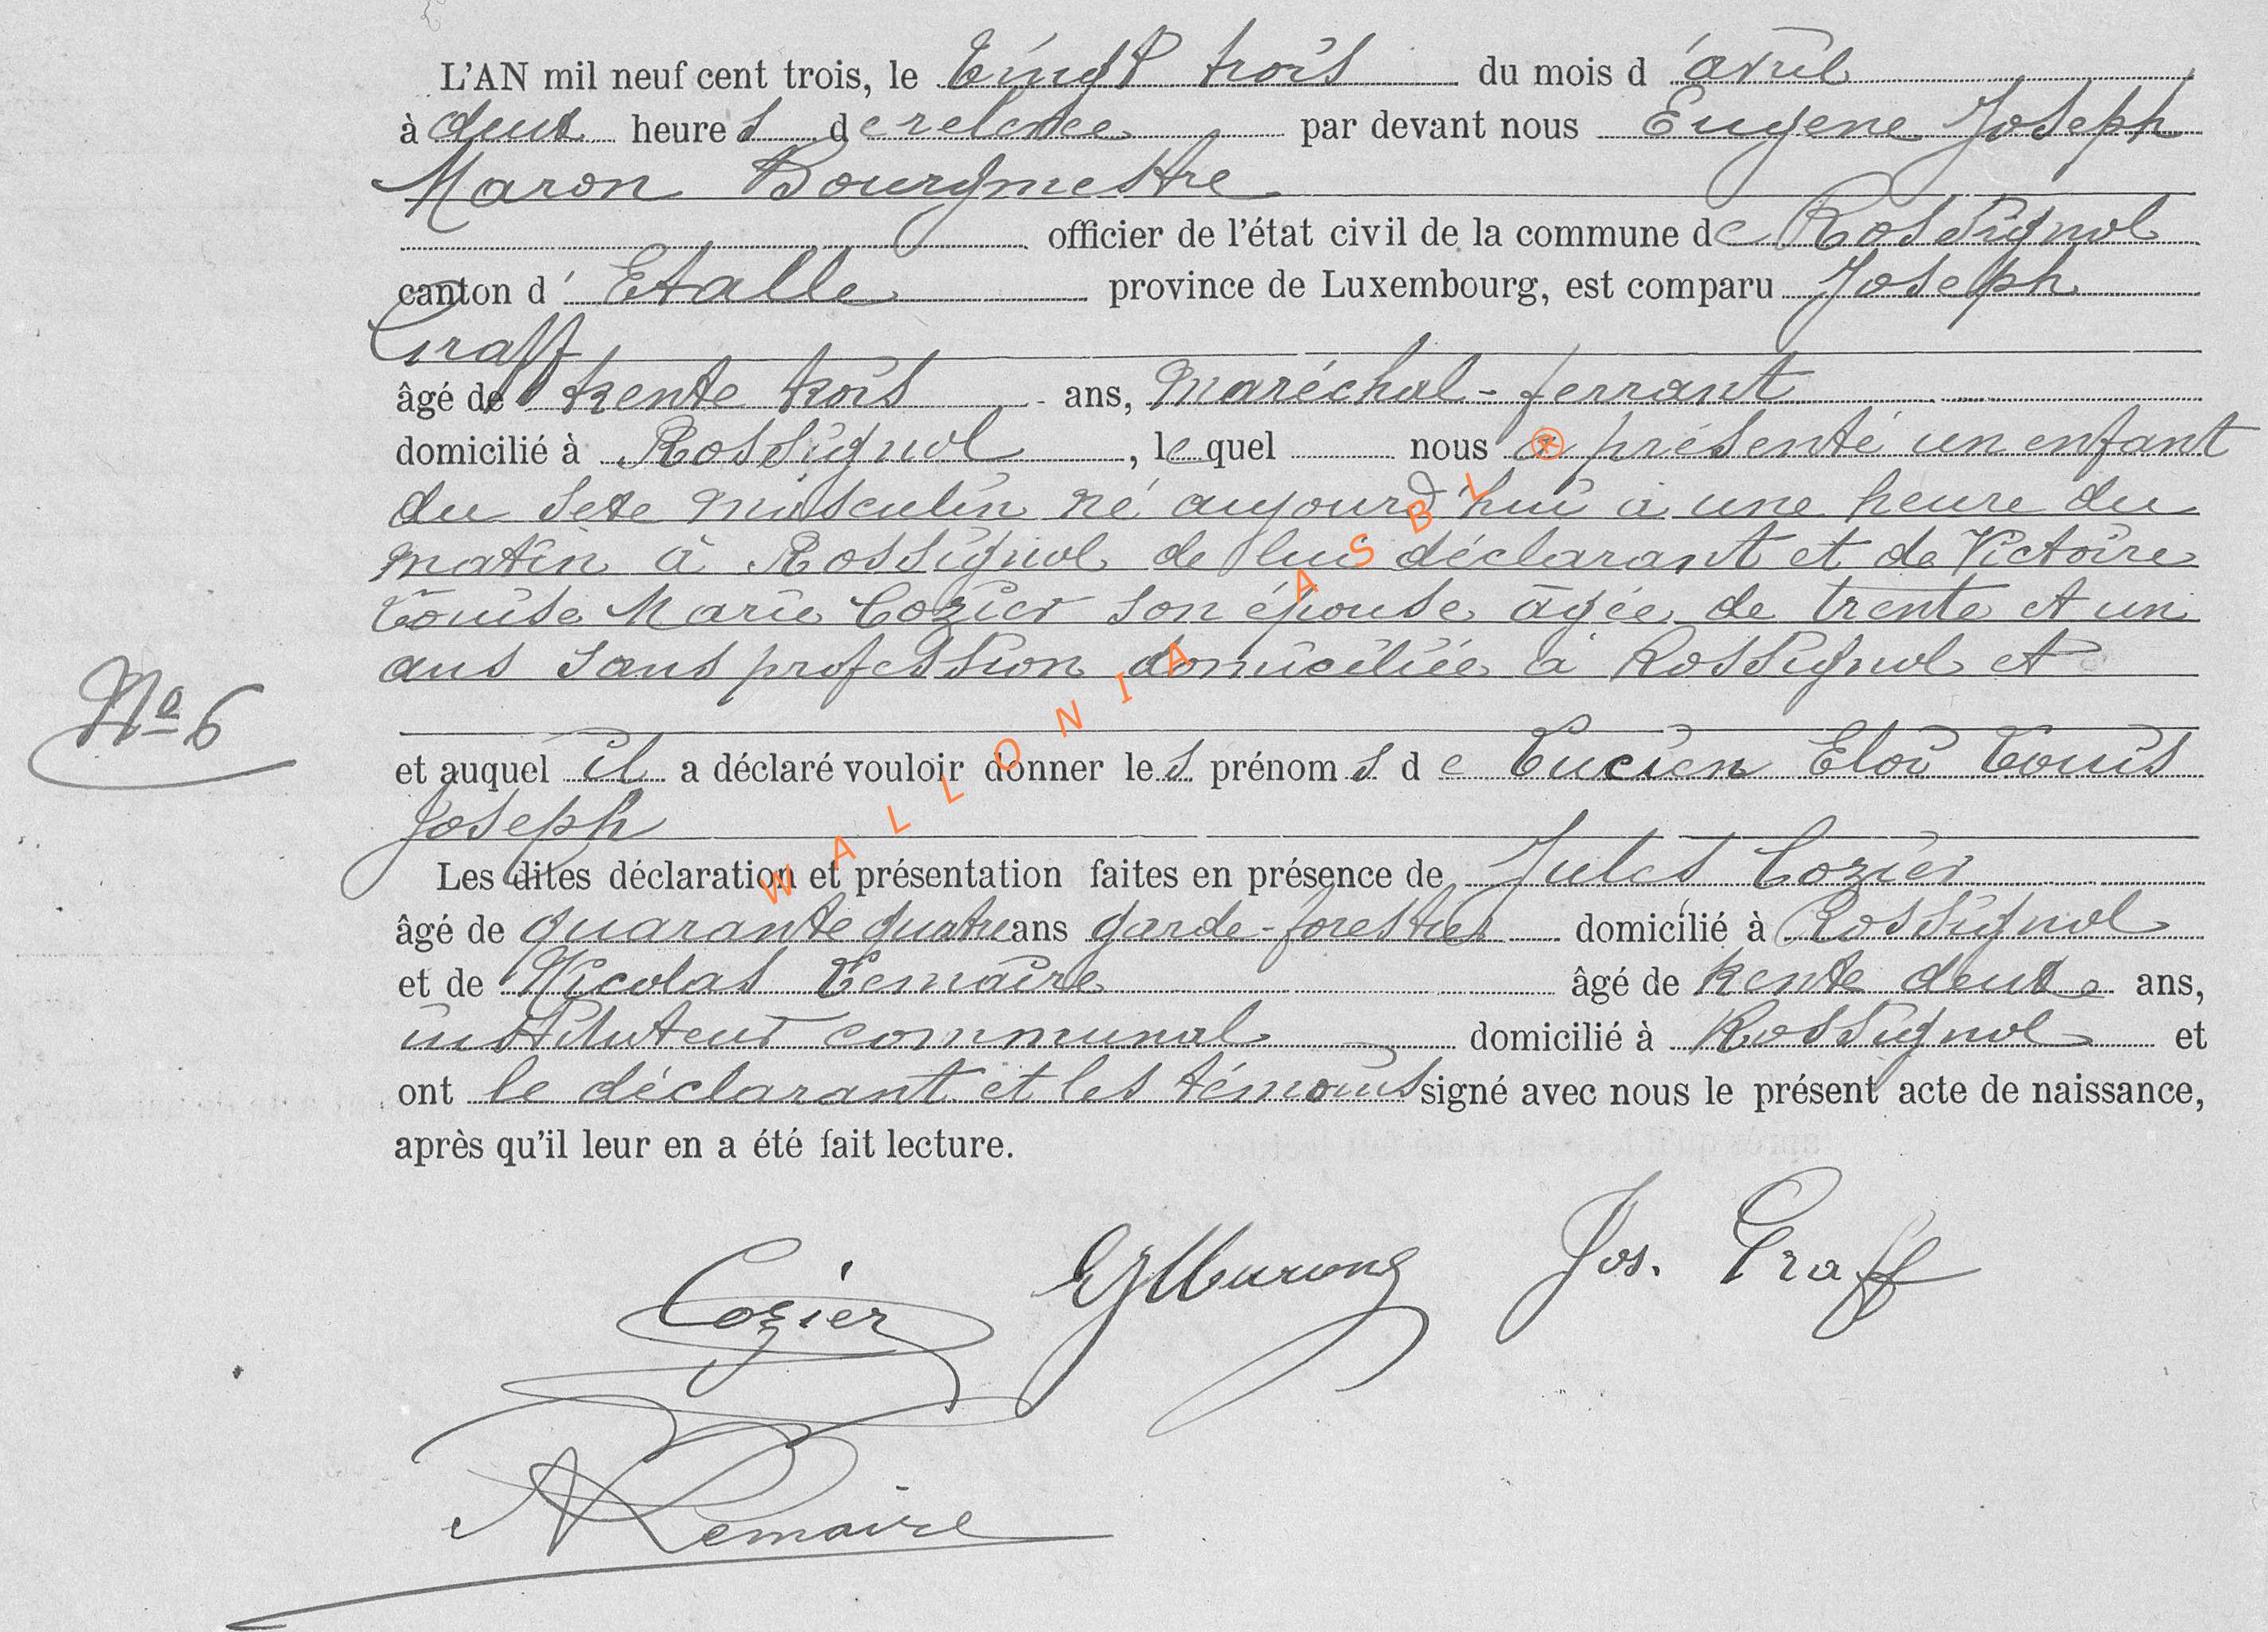 L'AN mil neuf cent trois, le Vingt trois du mois d'avril
à deux heures de relevée par devant nous Eugene Joseph
Maron Bourgmestre
officier de l'état civil de la commune de Rossignol
canton d'Etalle province de Luxembourg, est comparu Joseph
Graff
âgé de trente trois ans, maréchal-ferrant
domicilié à Rossignol, lequel nous a présenté un enfant
du sexe masculin né aujourd'hui à une heure du
matin à Rossignol de lui déclarant et de Victoire
Louise Marie Cozier son épouse âgée de trente et un
ans sans profession domiciliée à Rossignol et
No 6
et auquel il a déclaré vouloir donner les prénoms de Lucien Eloi Louis
Joseph
Les dites déclaration et présentation faites en présence de Jules Cozier
âgé de quarante quatre ans garde-forestier domicilié à Rossignol
et de Nicolas Lemaire âgé de trente deux ans,
instituteur communal domicilié à Rossignol et
ont le déclarant et les témoins signé avec nous le présent acte de naissance,
après qu'il leur en a été fait lecture.
Cozier EJMaron Jos. Graff
N Lemaire
WALLONIA ASBL ®